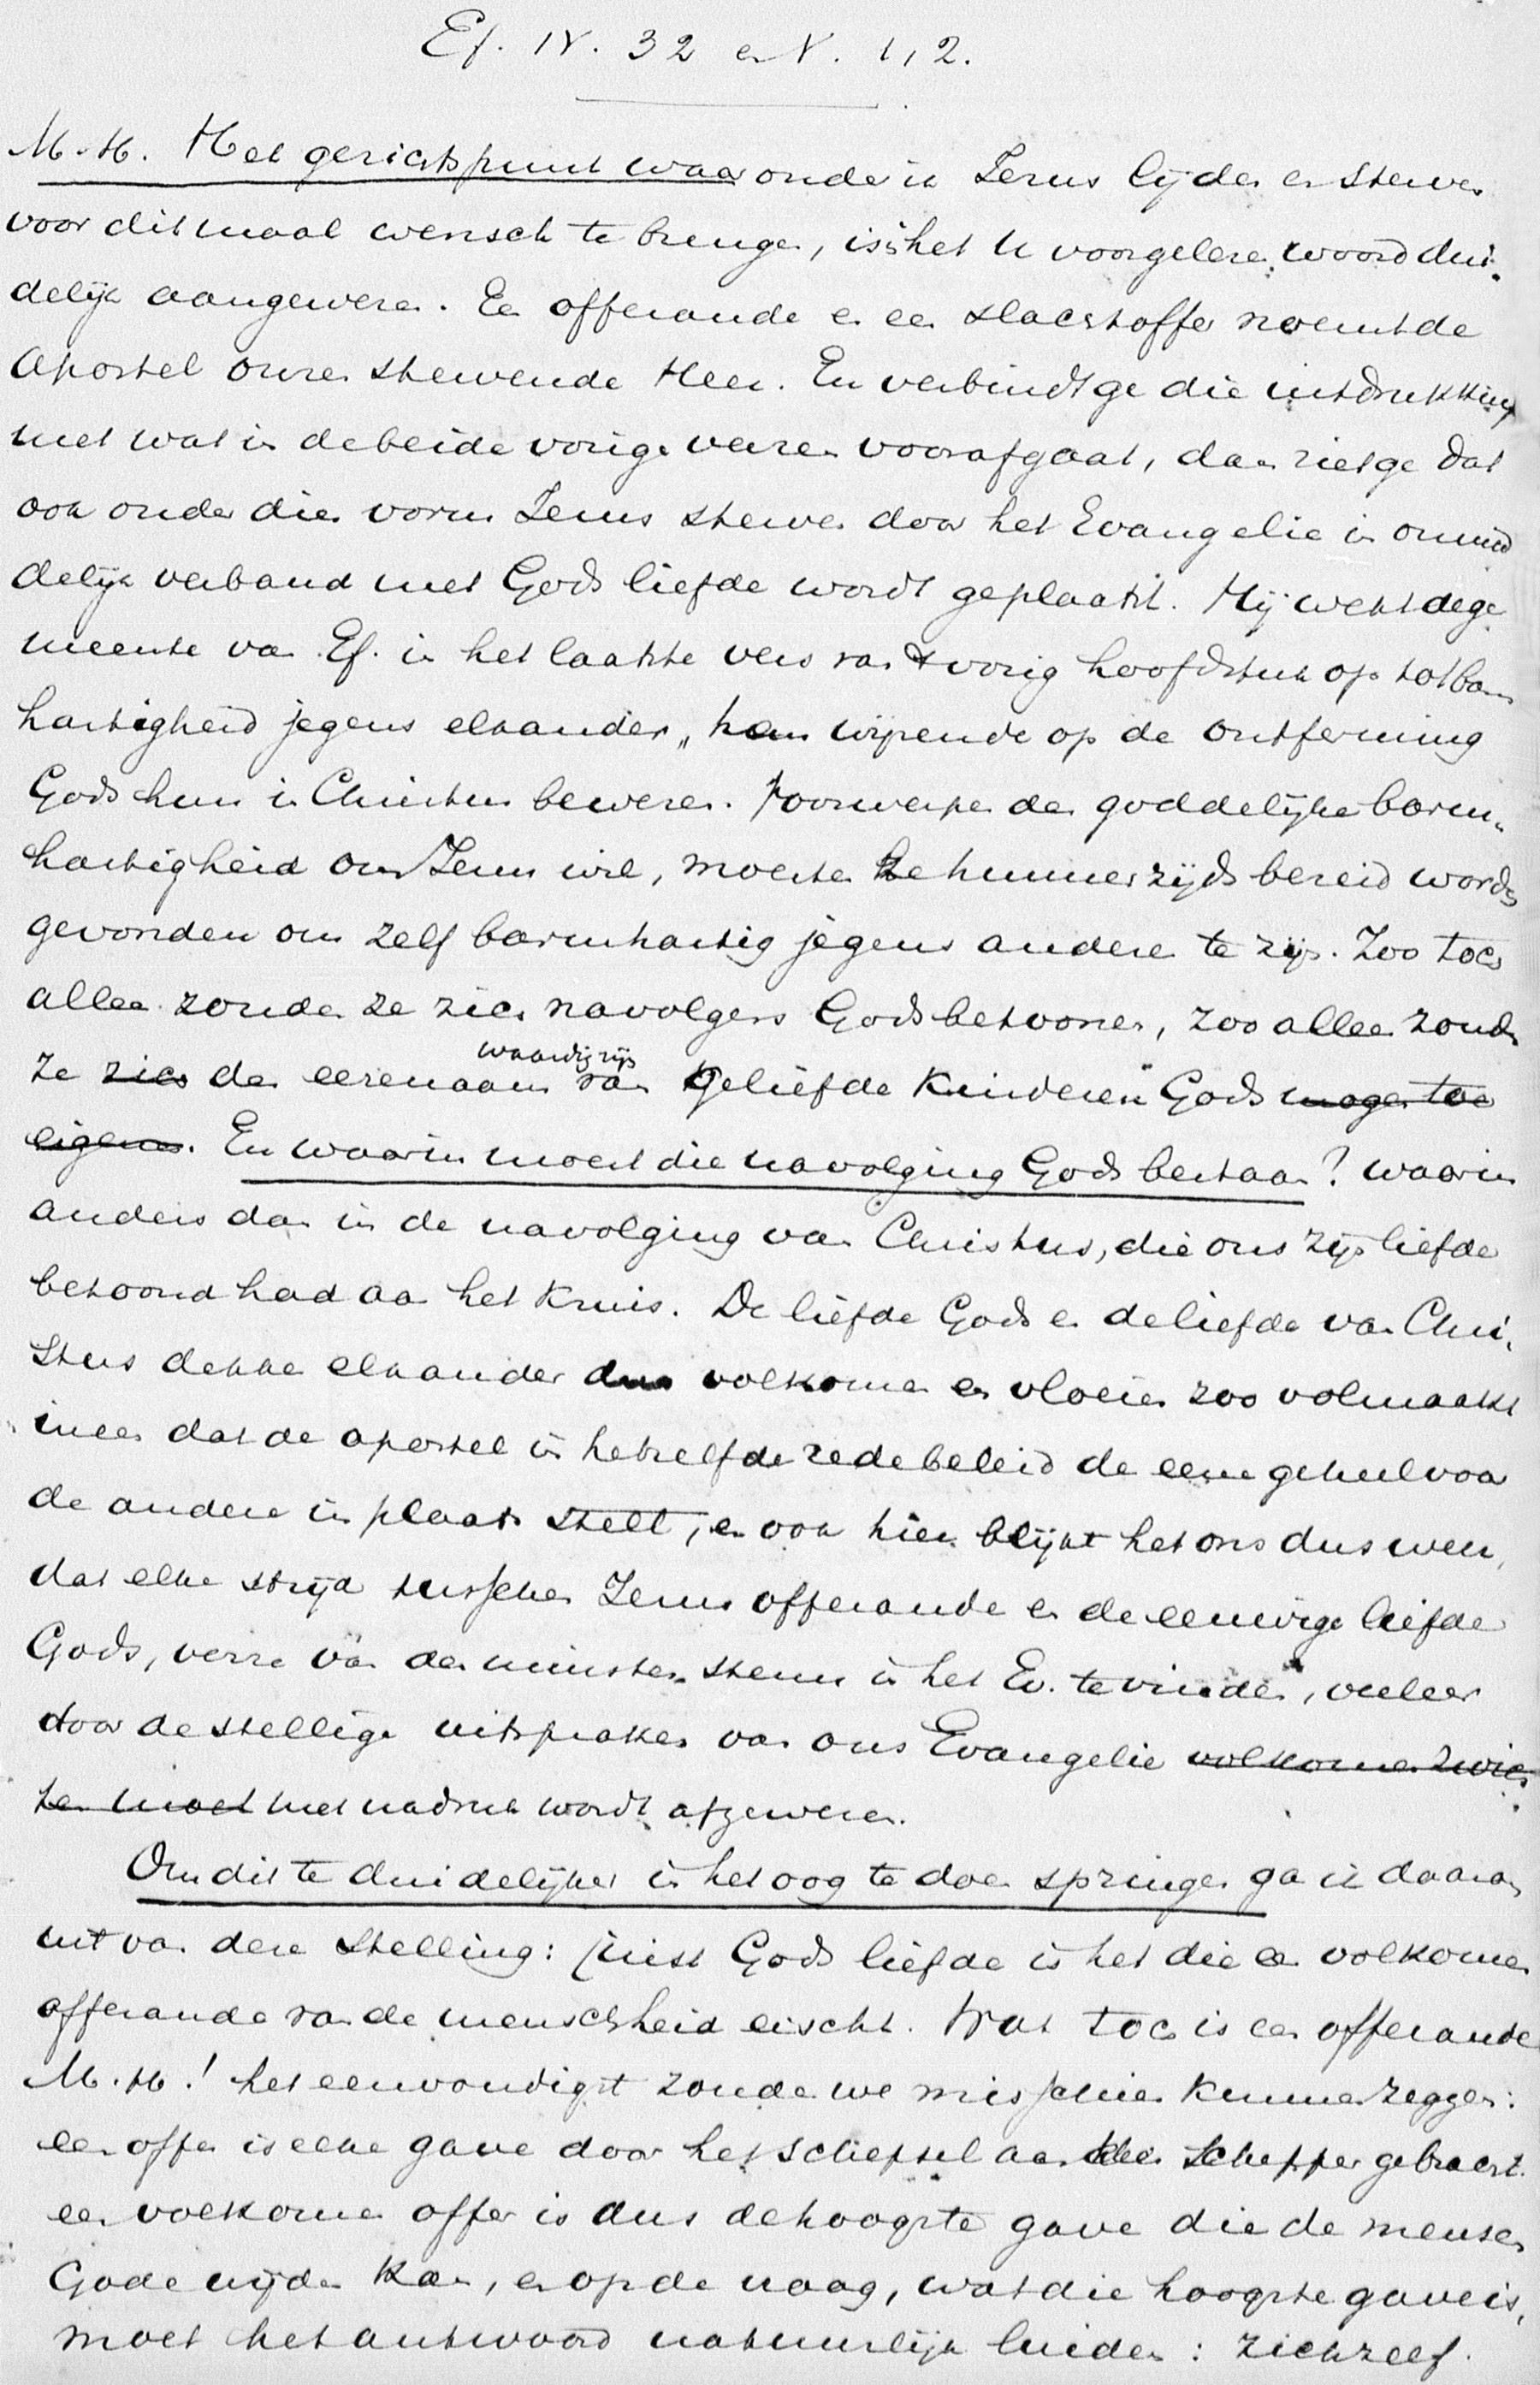 Ef. IV. 32 en V. 1, 2.
M. H. Het gezichtspunt waaronder ik Jezus lijden en sterven
voor ditmaal wensch te brengen, is in het U voorgelezen woord dui-
delijk aangewezen. Een offerande en een slachtoffer noemt de
Apostel onzen stervende Heer. En verbindt ge die uitdrukking
met wat in de beide vorige verzen voorafgaat, dan ziet ge dat
ook onder dien vorm Jezus sterven door het Evangelie in onmid
delijk verband met Gods liefde wordt geplaatst. Hij wekt de ge
meente van Ef. in het laatste vers van 't vorig hoofdstuk op tot barm
hartigheid jegens elkander, hen wijzende op de ontferming
Gods hun in Christus bewezen. Voorwerpen der goddelijke barm-
hartigheid om Jezus wil, moesten ze hunnerzijds bereid worden
gevonden om zelf barmhartig jegens anderen te zijn. Zoo toch
alleen zouden ze zich navolgers Gods betoonen, zoo alleen zouden
ze zich den eerenaam waardig zijn van "geliefde kinderen" Gods mogen toe
eigenen. En waarin moest die navolging Gods bestaan? waarin
anders dan in de navolging van Christus, die ons zijn liefde
betoond had aan het kruis. De liefde Gods en de liefde van Chri-
stus dekken elkander dus volkomen en vloeien zoo volmaakt
ineen dat de apostel in hetzelfde redebeleid de eene geheel voor
de andere in plaats stelt, en ook hier blijkt het ons dus weer,
dat elke strijd tusschen Jezus offerande en de eeuwige liefde
Gods, verre van den minsten steun in het Ev. te vinden, veeleer
door de stellige uitspraken van ons Evangelie volkomen zwich
ten moet met nadruk wordt afgewezen.
Om dit te duidelijker in het oog te doen springen ga ik daarom
uit van deze stelling: juist Gods liefde is het die een volkomen
offerande van de menschheid eischt. Wat toch is een offerande
M. H.! het eenvoudigst zouden we misschien kunnen zeggen:
een offer is elke gave door het schepsel aan den Schepper gebracht.
een volkomen offer is dus de hoogste gave die de mensch
Gode wijden kan, en op de vraag, wat die hoogste gave is,
moet het antwoord natuurlijk luiden: zichzelf.